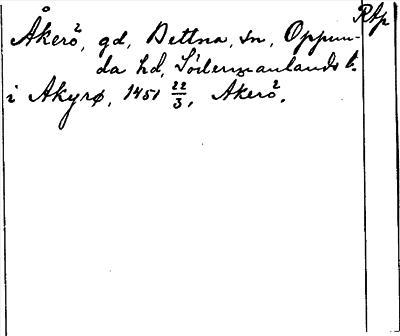 Rbp
Åkerö², gd, Bettna, sn, Oppun-
da hd, Södermanlands l.
i Akyrø, 1451 22/3, Akerö².